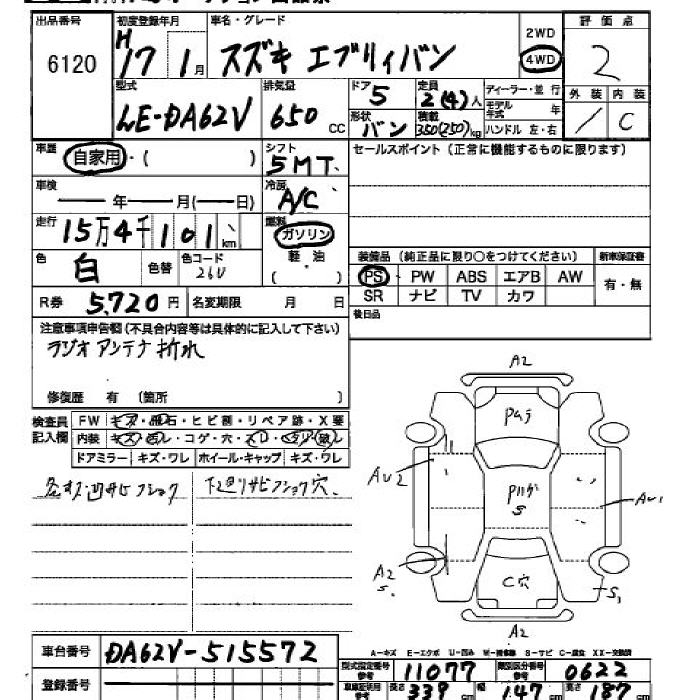 出品番号 初度登録年月 車名・グレード 2WD 評価点
6120 H17 1月 スズキ エブリィバン 4WD 2
型式 排気量 ドア 5 定員 2(4)人 ディーラー・並行 外装 内装
LE-DA62V 650cc 形状 バン 積載 350(250)kg モデル年式 年 / C
ハンドル 左・右
車歴 自家用・( ) シフト 5MT セールスポイント (正常に機能するものに限ります)
車検 ー年ー月(ー日) 冷房 A/C
走行 15万4千101km 燃料 ガソリン
色 白 色替 色コード 26U 軽・油 ( ) 装備品 (純正品に限り○をつけてください) 新車保証書
PS PW ABS エアB AW 有・無
R券 5,720円 名変期限 月 日 SR ナビ TV カワ
注意事項申告欄(不具合内容等は具体的に記入して下さい) 後日品
ラジオアンテナ折れ
修復歴 有 (箇所 )
検査員記入欄 FW キズ・飛石・ヒビ割・リペア跡・X要
内装 キズ・
・コゲ・穴・
ドアミラー キズ・ワレ ホイール・キャップ キズ・ワレ
下廻りサビ フショク穴
A2
AU2
AU1
S
C穴
A2
S
S1
A2
A-キズ E-エクボ U-凹み W-補修跡 S-サビ C-腐食 XX-交換済
車台番号 DA62V-515572 型式指定番号 参考 11077 類別区分番号 参考 0622
登録番号 車庫証明用 参考 長さ 339cm 幅 147cm 高さ 187cm